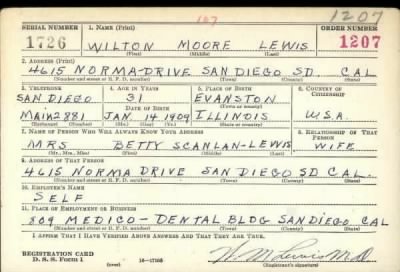 107
1207
SERIAL NUMBER 1. NAME (Print) ORDER NUMBER
1726 WILTON MOORE LEWIS 1207
(First) (Middle) (Last)
2. ADDRESS (Print)
4615 NORMA-DRIVE SAN DIEGO SD. CAL
(Number and street or R. F. D. number) (Town) (County) (State)
3. TELEPHONE 4. AGE IN YEARS 5. PLACE OF BIRTH 6. COUNTRY OF CITIZENSHIP
SAN DIEGO 31 EVANSTON
DATE OF BIRTH (Town or county)
MAIN2881 JAN 14 1909 ILLINOIS U.S.A.
(Exchange) (Number) (Mo.) (Day) (Yr.) (State or country)
7. NAME OF PERSON WHO WILL ALWAYS KNOW YOUR ADDRESS 8. RELATIONSHIP OF THAT PERSON
MRS BETTY SCANLAN-LEWIS WIFE
(Mr., Mrs., Miss) (First) (Middle) (Last)
9. ADDRESS OF THAT PERSON
4615 NORMA DRIVE SAN DIEGO SD CAL.
(Number and street or R. F. D. number) (Town) (County) (State)
10. EMPLOYER'S NAME
SELF
11. PLACE OF EMPLOYMENT OR BUSINESS
809 MEDICO-DENTAL BLDG SAN DIEGO CAL
(Number and street or R. F. D. number) (Town) (County) (State)
I AFFIRM THAT I HAVE VERIFIED ABOVE ANSWERS AND THAT THEY ARE TRUE.
REGISTRATION CARD
D. S. S. Form 1 16-17105 W M Lewis M.D.
(Registrant's signature)